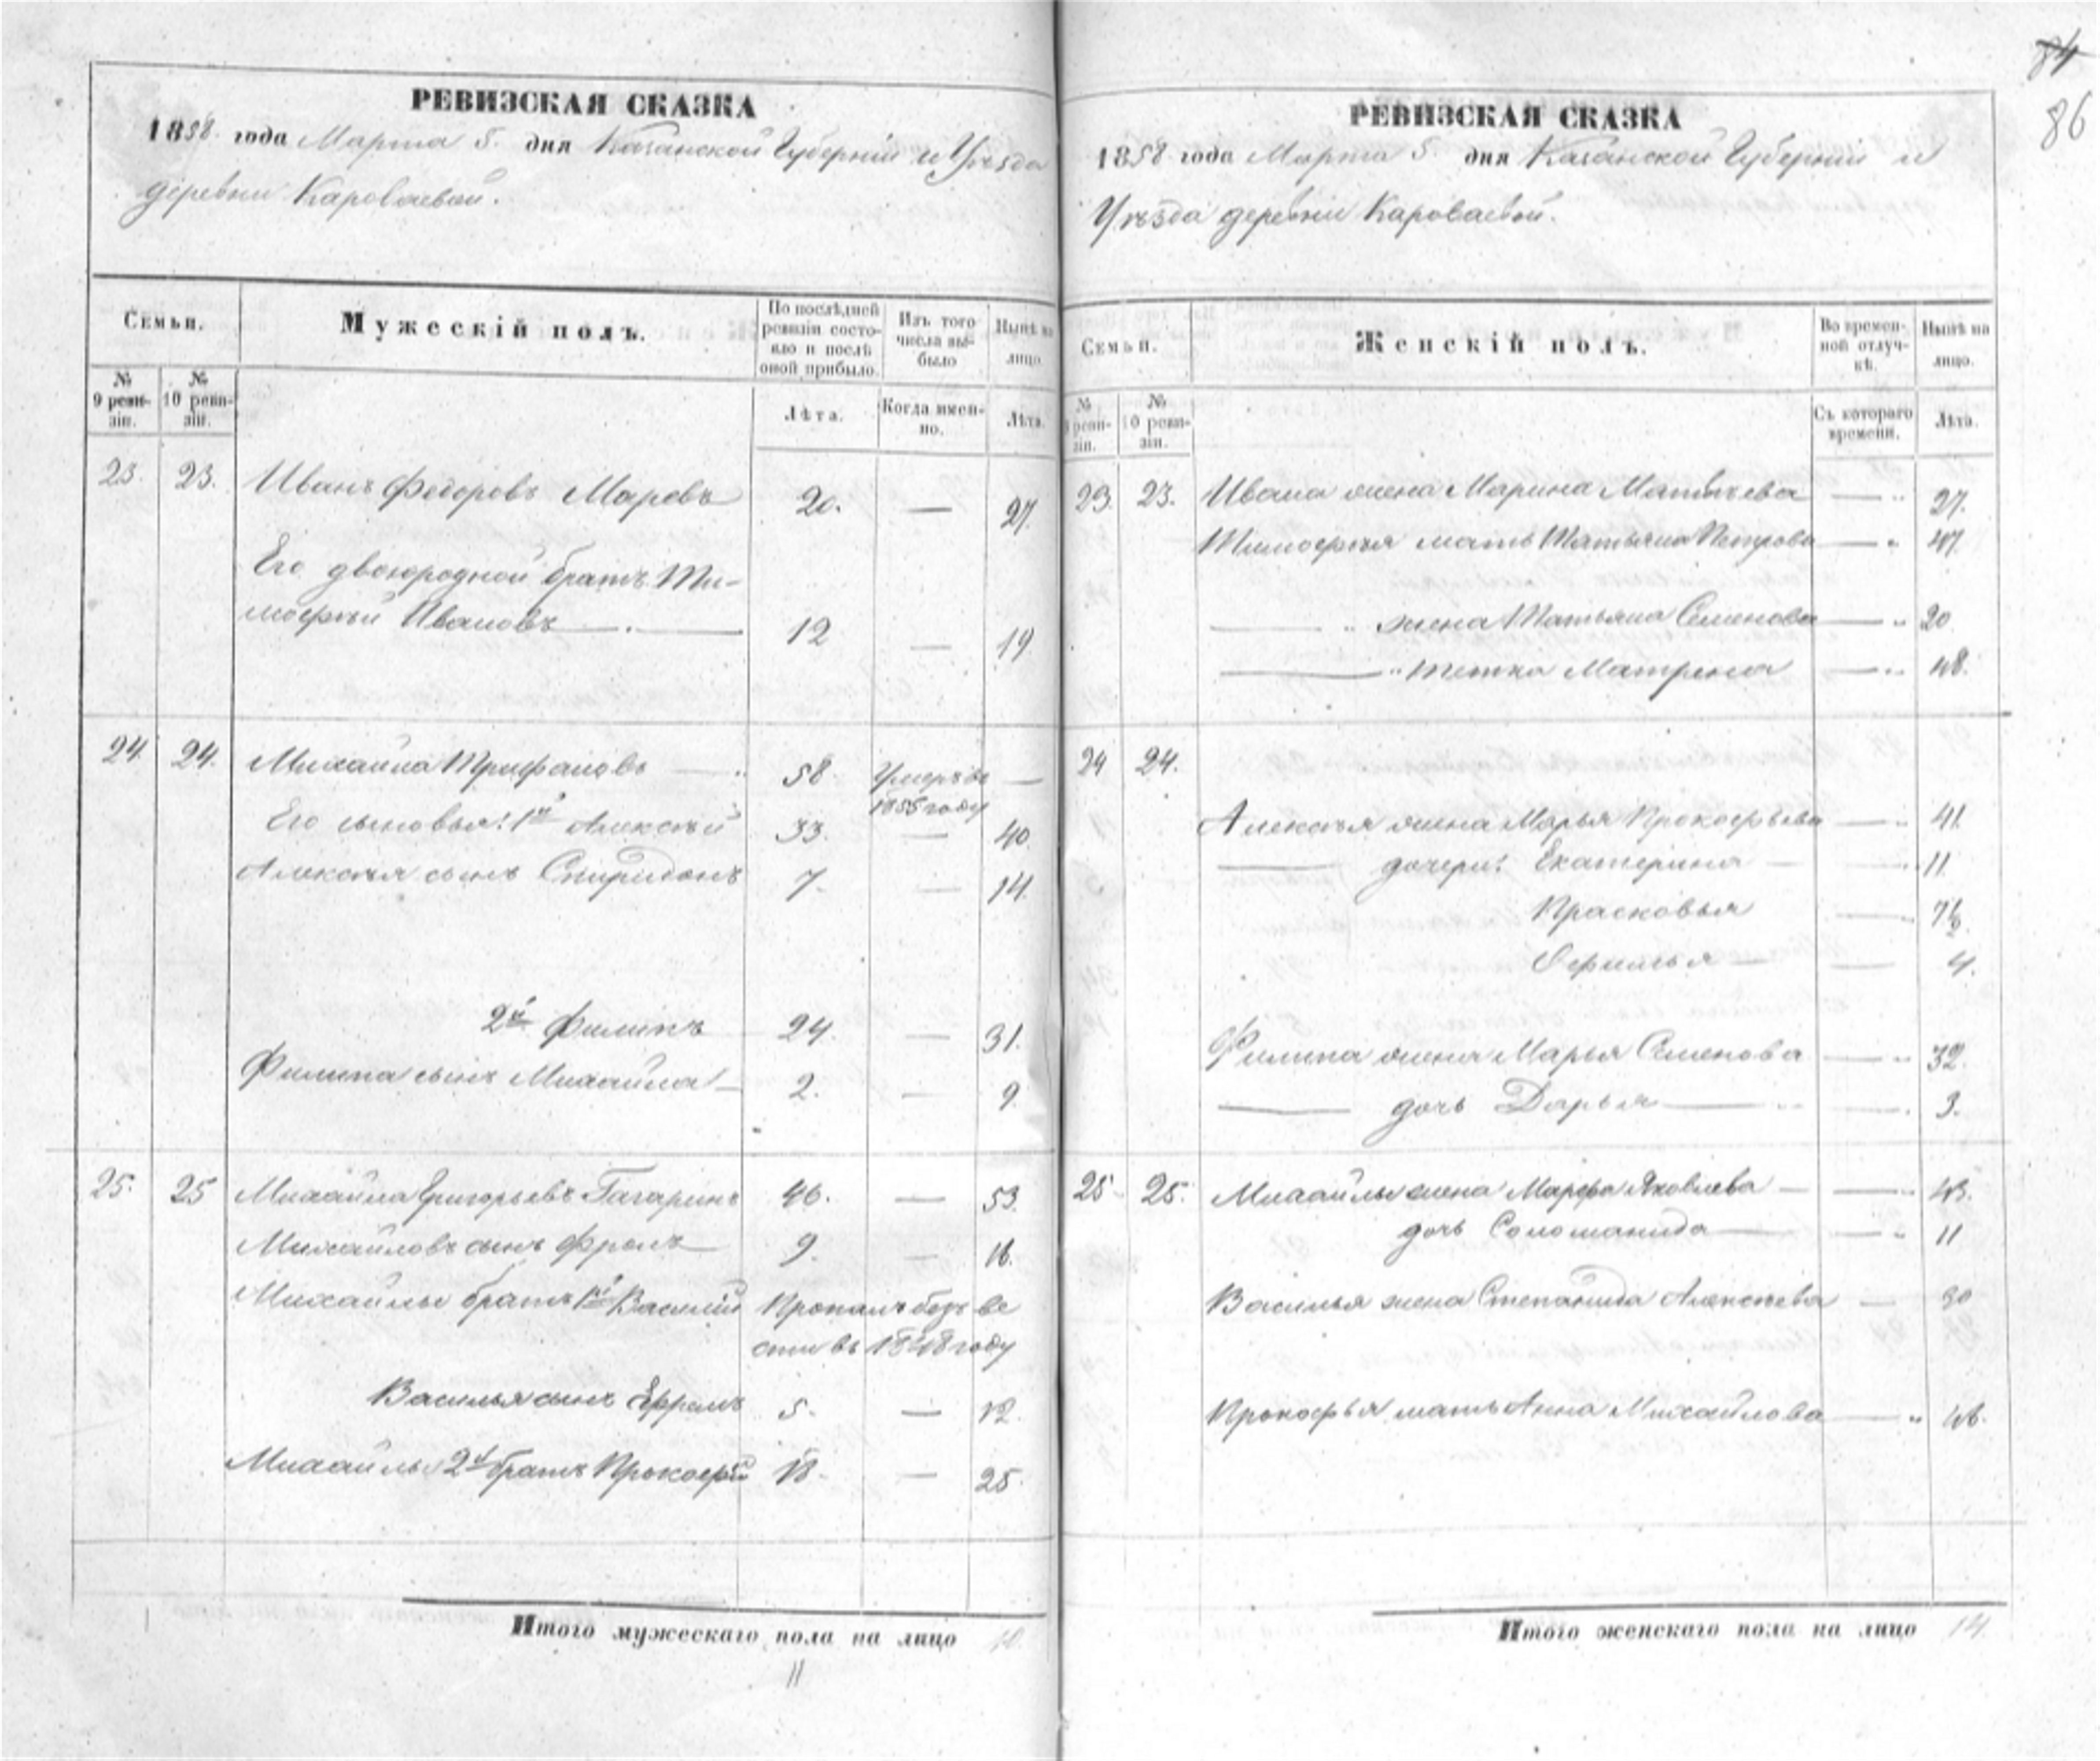 84
86
РЕВИЗСКАЯ СКАЗКА
1858 года Марта 5. дня Казанской Губернiи и Уѣзда
деревни Караваевой.
Семьи.
Мужескiй полъ.
По послѣдней ревизiи состояло и послѣ оной прибыло.
Изъ того числа выбыло
Нынѣ на лицо.
№ 9 ревизiи.
№ 10 ревизiи.
Лѣта.
Когда именно.
Лѣта.
23. 23. Иванъ Федоровъ Маровъ 20. — 27.
Его двоюродной братъ Ти-
мофѣй Ивановъ — 12 — 19.
24. 24. Михайла Трифановъ — 58. Умеръ въ —
1855 году
Его сыновья: 1й Алексѣй 33. — 40.
Алексѣя сынъ Спиридонъ 7. — 14.
2й Филипъ 24. — 31.
Филипа сынъ Михайла — 2. — 9.
25. 25 Михайла Григорьевъ Гагаринъ 46. — 53.
Михайловъ сынъ Фролъ 9. — 16.
Михайлы братъ 1й Василiй Пропалъ безъ ве
сти въ 1848 году
Василья сынъ Ефремъ 5. — 12.
Михайлы 2й братъ Прокофiй 18. — 25.
Итого мужескаго пола на лицо 10.
11
РЕВИЗСКАЯ СКАЗКА
1858 года Марта 5. дня Казанской Губернiи и
Уѣзда деревни Караваевой.
Семьи.
Женскiй полъ.
Во временной отлучкѣ.
Нынѣ на лицо.
№ 9 ревизiи.
№ 10 ревизiи.
Съ котораго времени.
Лѣта.
23. 23. Ивана жена Марина Матвѣева — 27.
Тимофѣя мать Татьяна Петрова — 47.
— жена Татьяна Семенова — 20.
— тетка Матрена — 48.
24 24.
Алексѣя жена Марья Прокофьева — 41.
— дочери: Екатерина — 11.
Прасковья — 7½.
Офимья — 4.
Филипа жена Марья Семенова — 32.
— дочь Дарья — 3.
25. 25. Михайлы жена Марфа Яковлева — 43.
дочь Соломанида — 11
Василья жена Степанида Алексѣева — 30
Прокофья мать Анна Михайлова — 46.
Итого женскаго пола на лицо 14.